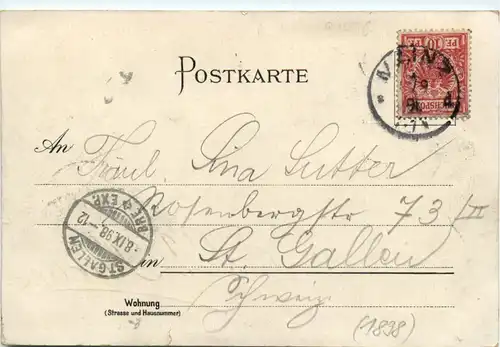 POSTKARTE
MAINZ
REICHSPOST
An Fräul. Lina Sutter
Rosenbergstr 73/III
in St. Gallen
Schweiz
ST. GALLEN
8.IX.98.-12
BRF. EXP.
Wohnung
(Strasse und Hausnummer)
(1898)